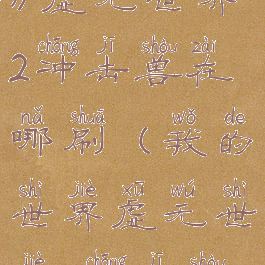 虚无世界
chōng jī shòu zài
2冲击兽在
nǎ shuā wǒ de
哪刷(我的
shì jiè xū wú shì
世界虚无世
jiè chōng jī shòu